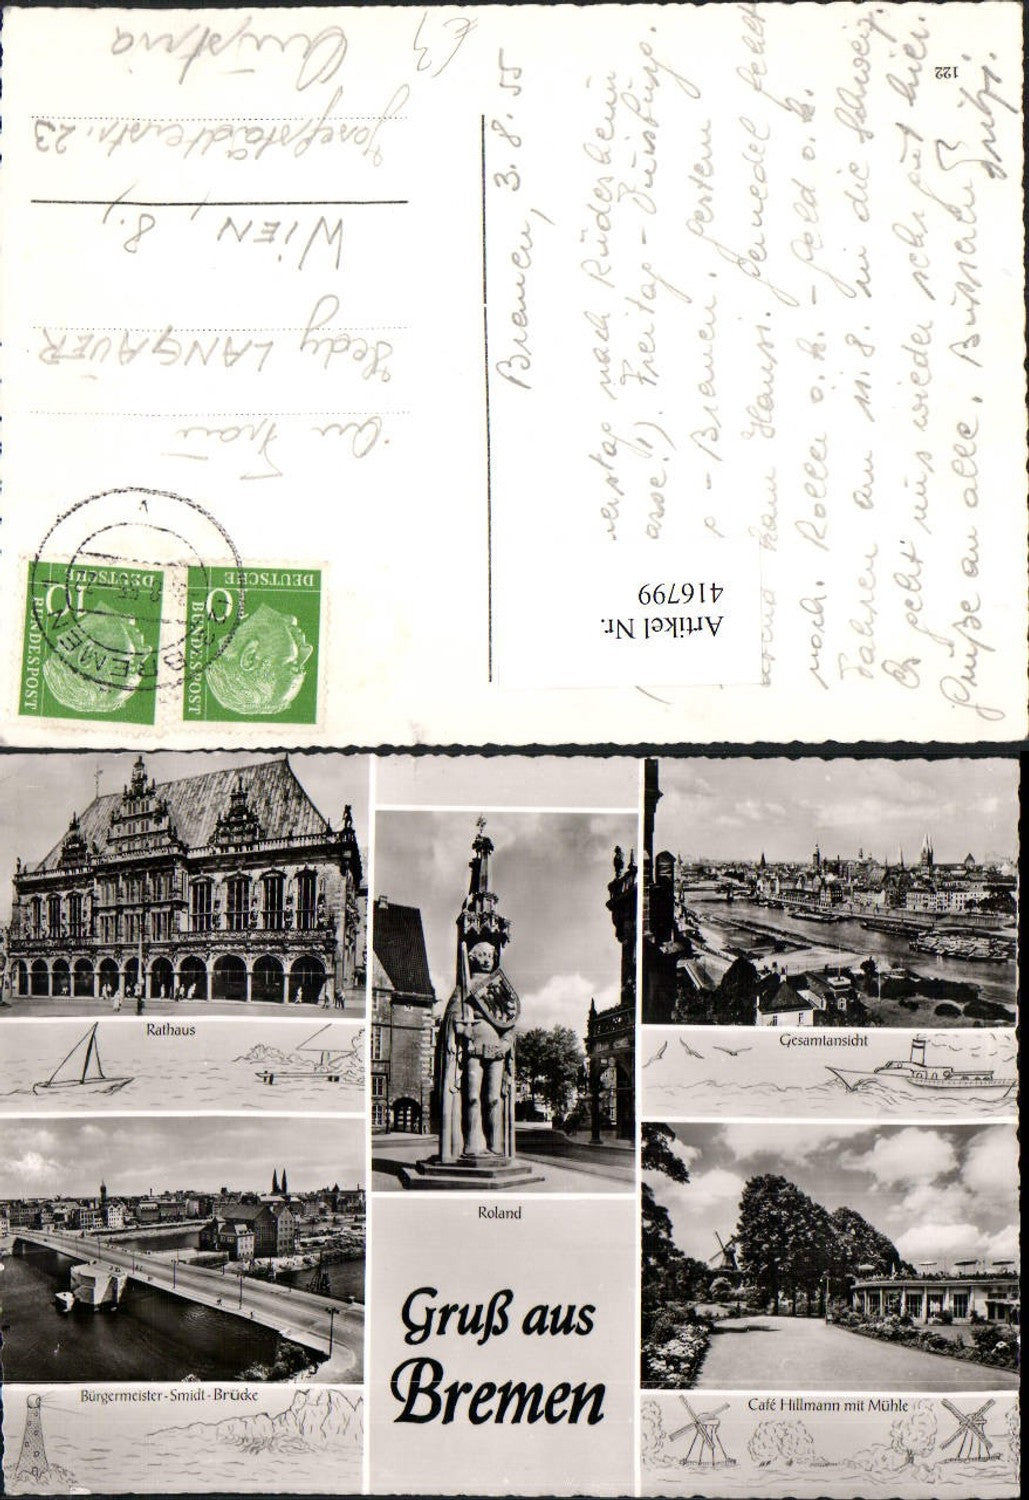 122
Bremen, 3.8.55
nach Rüdesheim
Freitag - Duisburg.
- Bremen. gestern
kam Hansi.
noch. Rolle o.k. - Geld o.k.
Fahren am 11.8. in die Schweiz.
Es geht uns wieder sehr gut hier.
Grüße an alle. Bussach
Artikel Nr.
416799
£3
An Frau
Hedy LANGAUER
WIEN, 8.,
Josefstädterstr. 23
Austria
DEUTSCHE
BUNDESPOST
10
DEUTSCHE
BUNDESPOST
10
BREMEN
Rathaus
Roland
Gesamtansicht
Bürgermeister-Smidt-Brücke
Gruß aus
Bremen
Café Hillmann mit Mühle